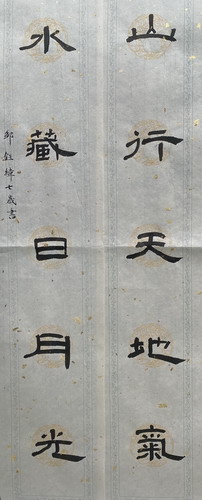 山行天地氣
水藏日月光
邹钰婷七歲書